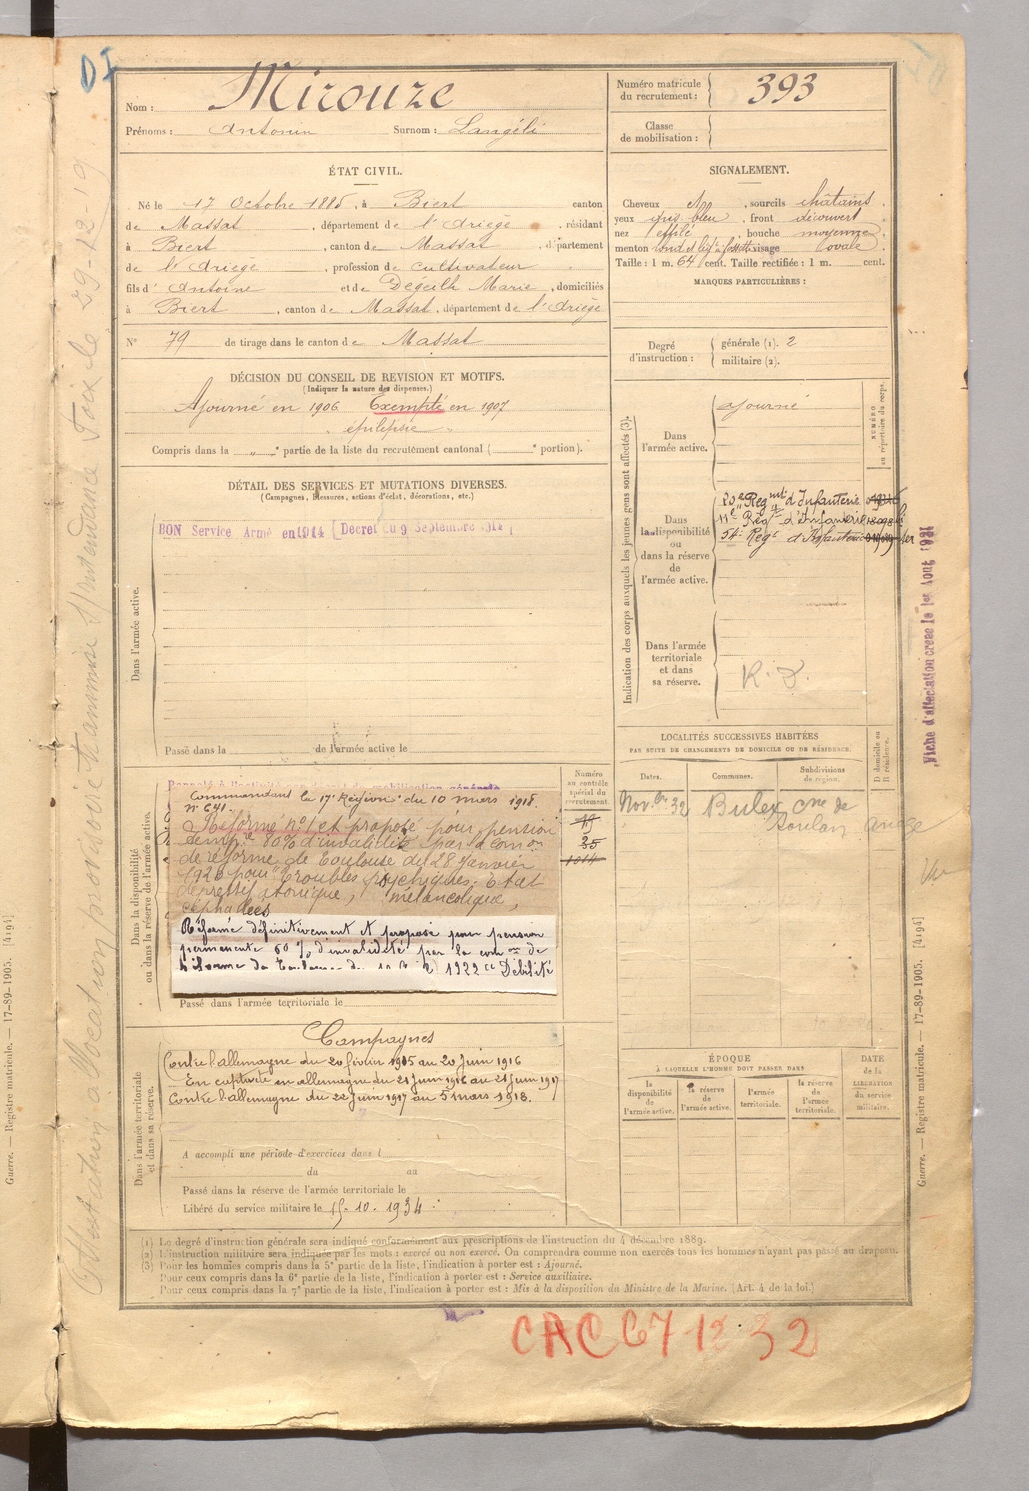 DI
Nom : Mirouze
Prénoms : Antonin Surnom : Langéli
Numéro matricule du recrutement : 393
Classe de mobilisation :
ÉTAT CIVIL.
Né le 17 Octobre 1885, à Biert canton
de Massat, département de l'Ariège, résidant
à Biert, canton de Massat, département
de l'Ariège, profession de cultivateur
fils d'Antoine et de Dégeilh Marie, domiciliés
à Biert, canton de Massat, département de l'Ariège
N° 79 de tirage dans le canton de Massat
SIGNALEMENT.
Cheveux , sourcils châtains.
yeux gris bleu, front découvert
nez effilé, bouche moyenne
menton rond et visage ovale
Taille : 1 m. 64 cent. Taille rectifiée : 1 m. cent.
MARQUES PARTICULIÈRES :
Degré d'instruction : générale (1). 2
militaire (2).
DÉCISION DU CONSEIL DE REVISION ET MOTIFS.
(Indiquer la nature des dispenses.)
Ajourné en 1906 Exempté en 1907
épilepsie
Compris dans la " e partie de la liste du recrutement cantonal ( e portion).
DÉTAIL DES SERVICES ET MUTATIONS DIVERSES.
(Campagnes, blessures, actions d'éclat, décorations, etc.)
BON Service Armé en 1914 [Décret du 9 Septembre 1914]
Dans l'armée active.
Passé dans la de l'armée active le
Indication des corps auxquels les jeunes gens sont affectés (3).
NUMÉRO au répertoire du corps.
Dans l'armée active. ajourné
Dans la disponibilité ou dans la réserve de l'armée active.
20e Regmt d'Infanterie
11e Regt d'Infanterie
54e Regt d'Infanterie
Dans l'armée territoriale et dans sa réserve.
Fiche d'affectation créée le 1er Août 1931
LOCALITÉS SUCCESSIVES HABITÉES
PAR SUITE DE CHANGEMENTS DE DOMICILE OU DE RÉSIDENCE.
Dates. Communes. Subdivisions de région. D domicile ou R résidence.
32 cne de
Soulan Ariège
Dans la disponibilité ou dans la réserve de l'armée active.
Numéro au contrôle spécial du recrutement.
Rappelé à l'activité mobilisation générale
Commandant la 17e Région du 10 mars 1918.
n° 641.
Réforme n° 1 et proposé pour pension
temp.re 80% d'invalidité par la Com.on
de réforme de Toulouse du 28 Janvier
1920 pour troubles psychiques: Etat
dépressif atonique, mélancolique,
céphalées
Réformé définitivement et proposé pour pension
permanente 60% d'invalidité par la com.on de
réforme de Toulouse du 1922 Débilité
35
1014
Passé dans l'armée territoriale le
Campagnes
Contre l'allemagne du 20 février 1915 au 20 juin 1916
En captivité en allemagne du 21 juin 1916 au 21 juin 1917
Contre l'allemagne du 22 juin 1917 au 5 mars 1918.
Dans l'armée territoriale et dans sa réserve.
A accompli une période d'exercices dans l
du au
Passé dans la réserve de l'armée territoriale le
Libéré du service militaire le 15.10.1934
ÉPOQUE
À LAQUELLE L'HOMME DOIT PASSER DANS
la disponibilité de l'armée active.
la réserve de l'armée active.
l'armée territoriale.
la réserve de l'armée territoriale.
DATE de la LIBÉRATION du service militaire.
(1) Le degré d'instruction générale sera indiqué conformément aux prescriptions de l'instruction du 4 décembre 1889.
(2) L'instruction militaire sera indiquée par les mots : exercé ou non exercé. On comprendra comme non exercés tous les hommes n'ayant pas passé au drapeau.
(3) Pour les hommes compris dans la 5e partie de la liste, l'indication à porter est : Ajourné.
Pour ceux compris dans la 6e partie de la liste, l'indication à porter est : Service auxiliaire.
Pour ceux compris dans la 7e partie de la liste, l'indication à porter est : Mis à la disposition du Ministre de la Marine. (Art. 4 de la loi.)
Guerre. — Registre matricule. — 17-89-1905. [4194]
Guerre. — Registre matricule. — 17-89-1905. [4194]